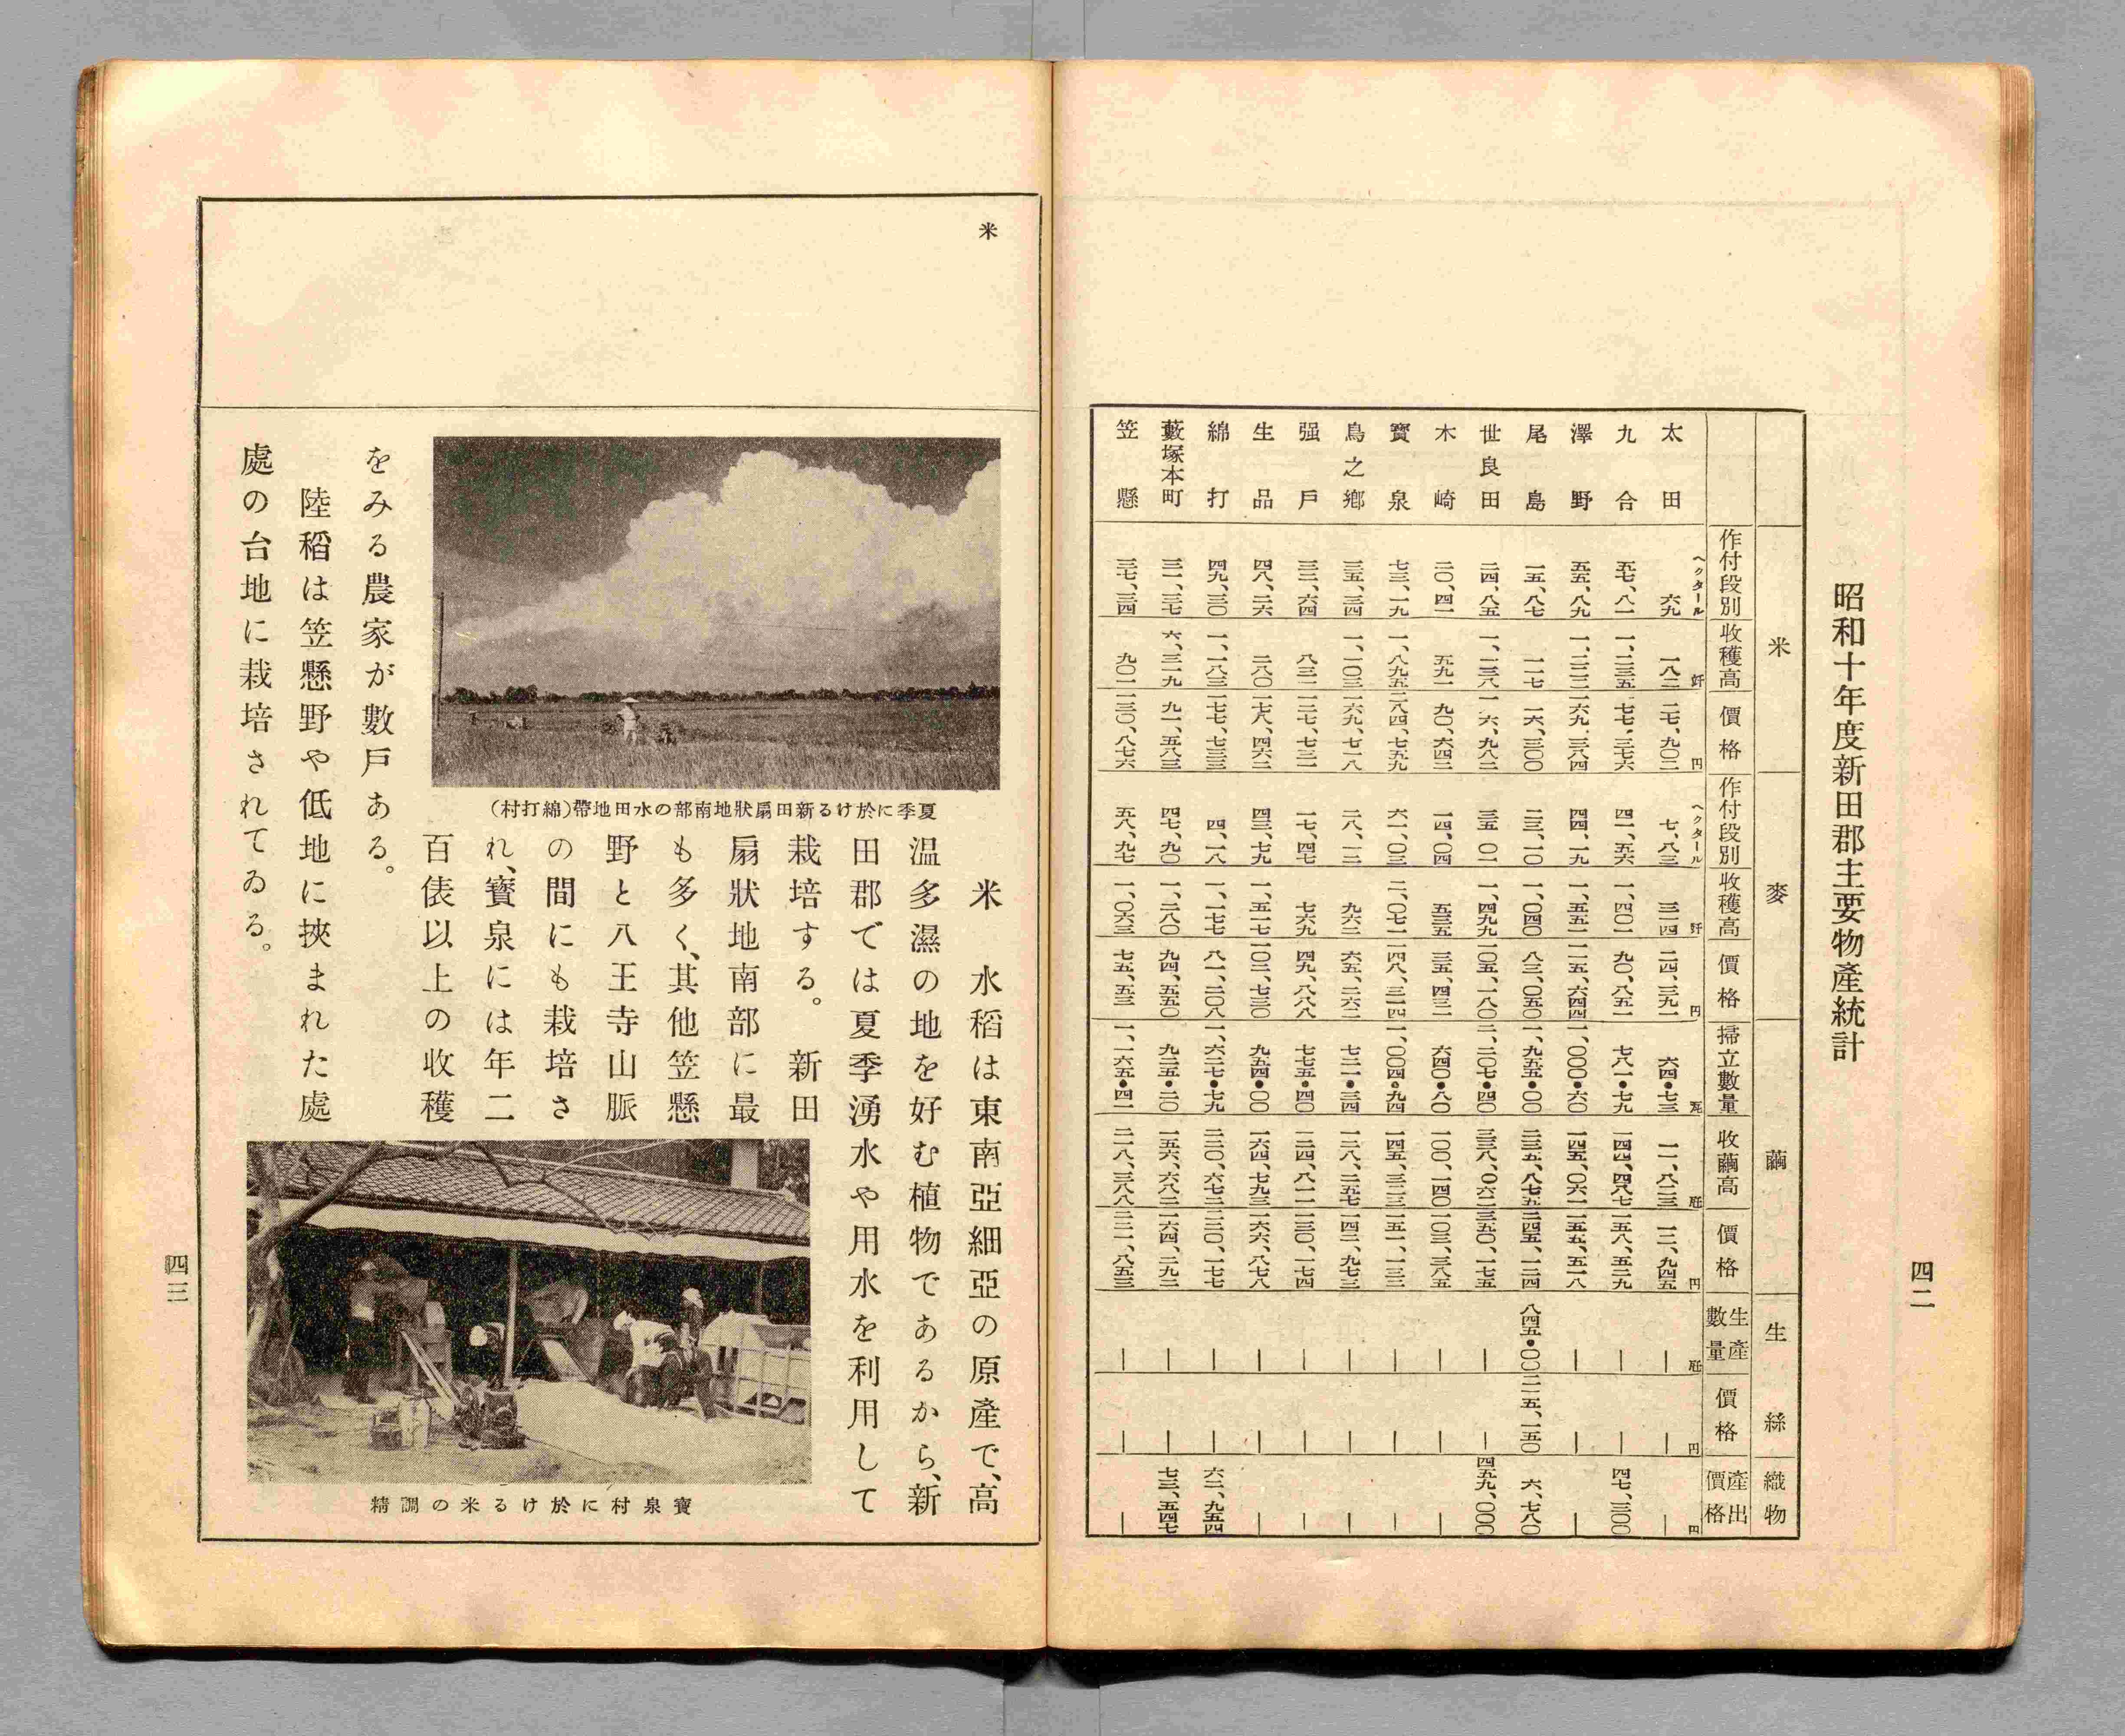 昭和十年度新田郡主要物產統計
米 麥 繭 生絲 織物
作付段別 收穫高 價格 作付段別 收穫高 價格 掃立數量 收繭高 價格 生產數量 價格 產出價格
ヘクタール 竏 円 ヘクタール 竏 円 瓦 瓩 円 瓩 円 円
太田 六九 一八二 二七、九〇二 七、八三 三一四 二四、三九一 六四●七三 一一、八二三 一二、九四五 ― ― ―
九合 五七、八一 一、二三五 一七七、三七六 四一、五六 一、四〇一 九〇、八五一 七八一●七九 一四四、四八七 一五八、五二九 ― ― 四七、三〇〇
澤野 五五、八九 一、二三二 一六九、三八四 四四、一九 一、五五二 一一五、六四四 一、〇〇〇●六〇 一四五、〇六一 一五五、五一八 ― ― ―
尾島 一五、八七 一一七 一六、三〇〇 二三、一〇 一、〇四〇 八三、〇五〇 一、九五五●〇〇 二三五、八七五 二四五、一二四 八四五●〇〇 二一五、一五〇 六、七八〇
世良田 二四、八五 一、二三八 一六、九八二 三五、〇一 一、四九九 一〇五、一八〇 二、二〇七●四〇 三三八、〇六二 三五〇、一七五 ― ― 四五九、〇〇〇
木崎 二〇、四一 五九一 九〇、六四二 一四、〇四 五三五 三五、四三一 六四〇●八〇 一〇〇、一四〇 一〇三、三八五 ― ― ―
寶泉 七三、一九 一、八九五 二八四、七五九 六一、〇三 二、〇七一 一四八、三一四 一、〇〇四●九四 一四五、三二三 一五一、一三二 ― ― ―
鳥之鄕 三五、三四 一、一〇三 一六九、七一八 二八、一二 九六二 六五、二六二 七二一●三四 一二八、二五七 一四二、九七三 ― ― ―
强戶 三二、六四 八三一 一二七、七三一 一七、四七 七六九 四九、八八八 七七五●四〇 一二四、八一一 一三〇、一七四 ― ― ―
生品 四八、二六 二八〇 一七八、四六二 四三、七九 一、五一七 一〇二、七三〇 九五四●〇〇 一六四、七九三 一六六、八七八 ― ― ―
綿打 四九、三〇 一、一八三 一七七、七三三 四、一八 一、一七七 八一、二〇八 一、六二七●七九 二二〇、六七二 二二〇、一七七 ― ― 六二、九五四
藪塚本町 三一、三七 六、三一九 九一、五八三 四七、九〇 一、二八〇 九四、五五〇 九二五●二〇 一五六、六八二 一六四、二九二 ― ― 七三、五四七
笠懸 三七、三四 九〇一 一三〇、八七六 五八、九七 一、〇六三 七五、五三 一、一六五●四一 二一八、三八八 二二一、八五三 ― ― ―
四二
米
米　水稻は東南亞細亞の原產で、高
温多濕の地を好む植物であるから、新
田郡では夏季湧水や用水を利用して
栽培する。　新田
扇狀地南部に最
も多く、其他笠懸
野と八王寺山脈
の間にも栽培さ
れ、寶泉には年二
百俵以上の收穫
をみる農家が數戸ある。
陸稻は笠懸野や低地に挾まれた處
處の台地に栽培されてゐる。
夏季に於ける新田扇狀地南部の水田地帶(綿打村)
寶泉村に於ける米の調精
四三